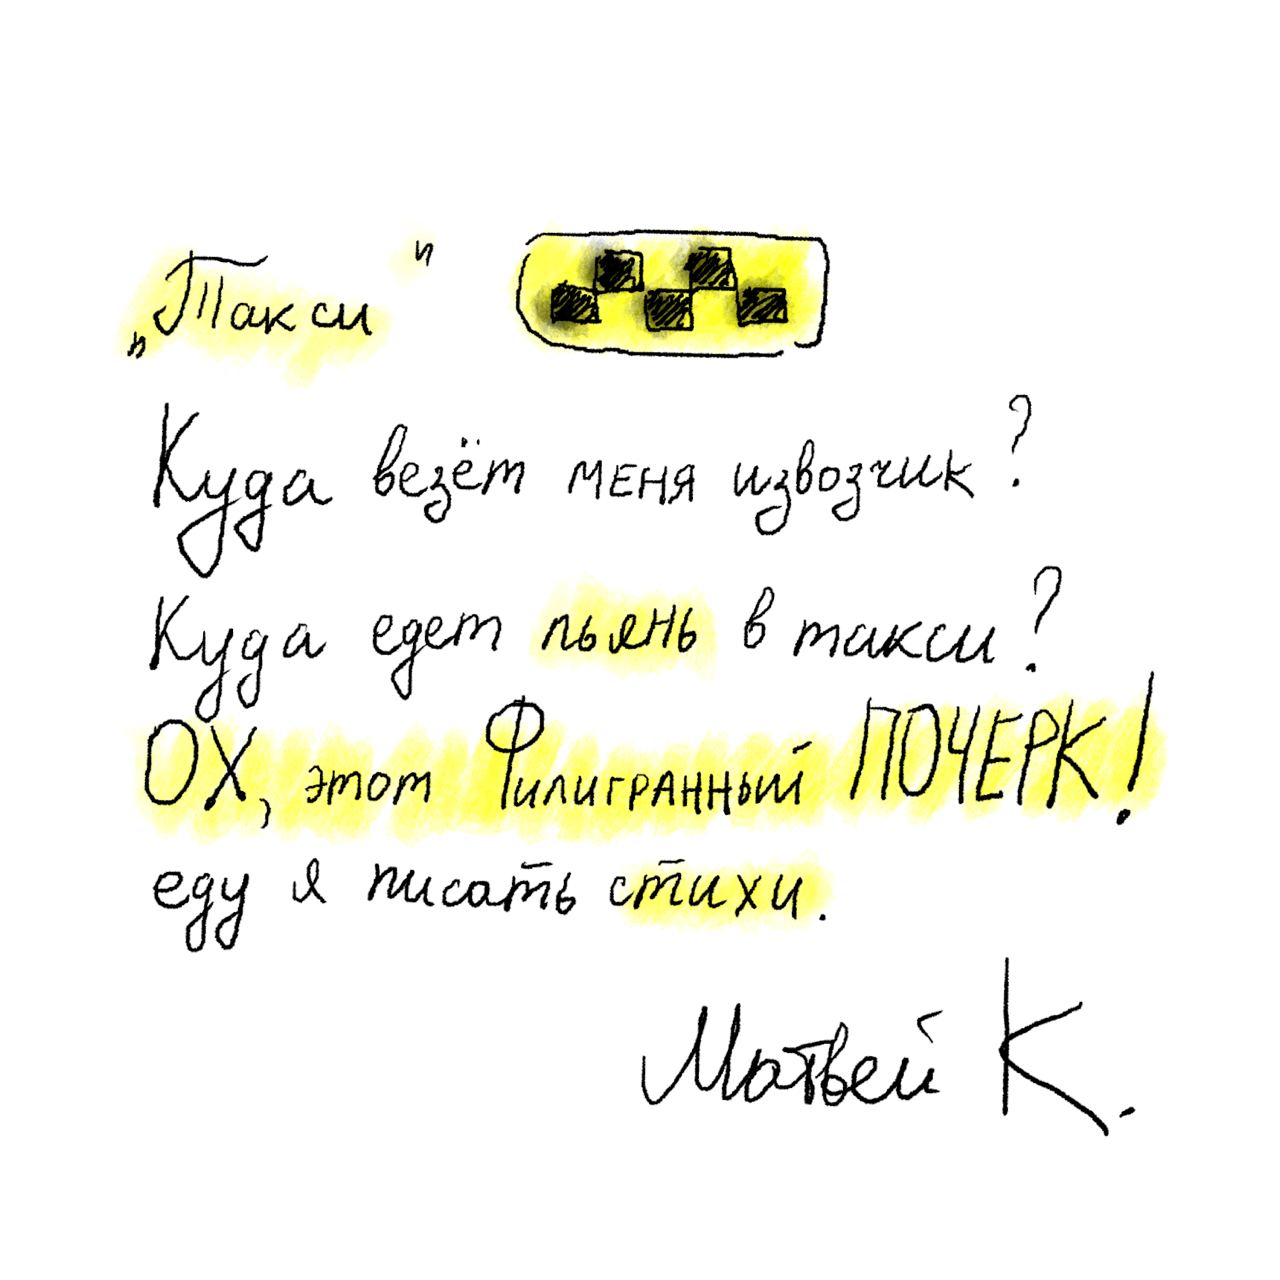 „Такси"
Куда везёт меня извозчик?
Куда едет пьянь в такси?
ОХ, этот Филигранный ПОЧЕРК!
еду я писать стихи.
Матвей К.